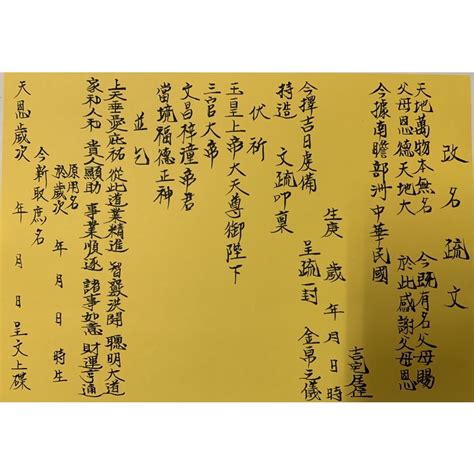 改名疏文
天地萬物本無名 今既有名父母賜
父母恩德天地大 於此感謝父母恩
今據南瞻部洲中華民國
吉宅居住
生庚 歲 年 月 日 時
今擇吉日虔備 呈疏一封 金帛之儀
持造 文疏叩稟
伏祈
玉皇上帝大天尊御陛下
三官大帝
文昌梓潼帝君
當境福德正神
並乞
上天垂愛庇祐 從此道業精進 智慧洪開 聰明大道
家和人和 貴人顯助 事業順遂 諸事如意 財運亨通
原用名
於歲次 年 月 日 時生
今新取應名
天恩歲次 年 月 日 呈文上碟